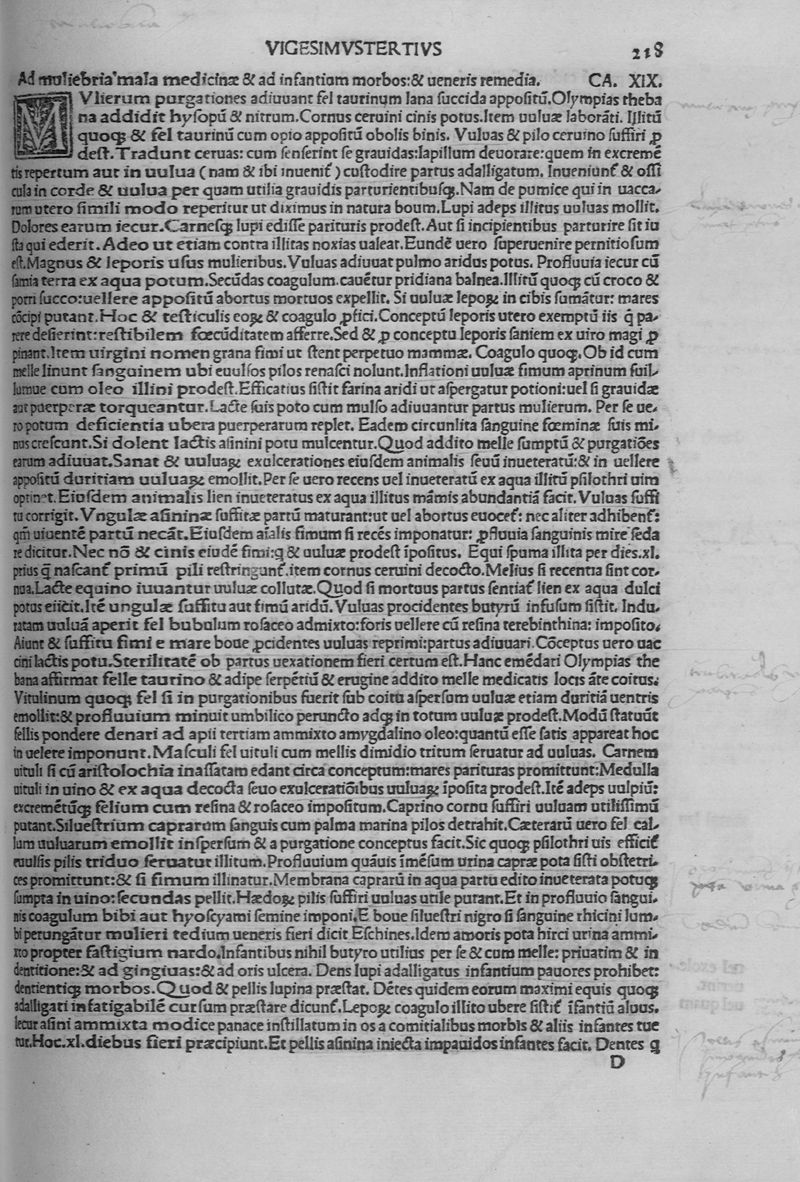 VIGESIMVSTERTIVS
218
Ad muliebria mala medicinæ & ad infantium morbos:& ueneris remedia. CA. XIX.
MVlierum purgationes adiuuant fel taurinum lana succida appositū.Olympias theba
na addidit hysopū & nitrum.Cornus ceruini cinis potus.Item uuluæ laborāti. Illitū
quoqꝫ & fel taurinū cum opio appositū obolis binis. Vuluas & pilo ceruino suffiri ꝓ
dest. Tradunt ceruas: cum senserint se grauidas:lapillum deuorare:quem in excremē
tis repertum aut in uulua (nam & ibi inuenit᷑) custodire partus adalligatum. Inueniunt᷑ & ossi
cula in corde & uulua per quam utilia grauidis parturientibusqꝫ.Nam de pumice qui in uacca-
rum utero simili modo reperitur ut diximus in natura boum.Lupi adeps illitus uuluas mollit.
Dolores earum iecur.Carnesqꝫ lupi edisse parituris prodest.Aut si incipientibus parturire sit iu
sta qui ederit.Adeo ut etiam contra illitas noxias ualeat.Eundē uero superuenire pernitiosum
est.Magnus & leporis usus mulieribus.Vuluas adiuuat pulmo aridus potus. Profluuia iecur cū
samia terra ex aqua potum.Secūdas coagulum.cauēt᷑ur pridiana balnea.Illitū quoqꝫ cū croco &
porri succo:uellere appositū abortus mortuos expellit. Si uuluæ lepoꝝ in cibis sumātur: mares
cōcipi putant.Hoc & testiculis eoꝝ & coagulo ꝓfici.Conceptū leporis utero exemptū iis q̄ pa-
rere desierint:restibilem fœcūditatem afferre.Sed & ꝓ conceptu leporis saniem ex uiro magi ꝓ
pinant.Item uirgini nomen grana fimi ut stent perpetuo mammæ. Coagulo quoqꝫ.Ob id cum
melle linunt sanguinem ubi euulsos pilos renasci nolunt.Inflationi uuluæ fimum aprinum suil-
lumue cum oleo illini prodest.Efficatius sistit farina aridi ut aspergatur potioni:uel si grauidæ
aut puerperæ torqueantur.Lacte suis poto cum mulso adiuuantur partus mulierum. Per se ue-
ro potum deficientia ubera puerperarum replet. Eadem circunlita sanguine fœminæ suis mi-
nus crescunt.Si dolent lactis asinini potu mulcentur.Quod addito melle sumptū & purgatiōes
earum adiuuat.Sanat & uuluaꝝ exulcerationes eiusdem animalis seuū inueteratū:& in uellere
appositū duritiam uuluaꝝ emollit.Per se uero recens uel inueteratū ex aqua illitū psilothri uim
optinet.Eiusdem animalis lien inueteratus ex aqua illitus māmis abundantiā facit.Vuluas suffi
tu corrigit.Vngulæ asininæ suffitæ partū maturant:ut uel abortus euocet᷑: nec aliter adhibent᷑:
qm̄ uiuentē partū necāt.Eiusdem aīalis fimum si recēs imponatur: ꝓfluuia sanguinis mire seda
re dicitur.Nec nō & cinis eiudē fimi:q & uuluæ prodest īpositus. Equi spuma illita per dies.xl.
prius q̄ nascant᷑ primū pili restringunt᷑.item cornus ceruini decocto.Melius si recentia sint cor-
nua.Lacte equino iuuantur uuluæ collutæ.Quod si mortuus partus sentiat᷑ lien ex aqua dulci
potus eiicit.Itē ungulæ suffitu aut fimū aridū.Vuluas procidentes butyrū infusum sistit. Indu-
ratam uuluā aperit fel bubulum rosaceo admixto:foris uellere cū resina terebinthina: imposito.
Aiunt & suffitu fimi e mare boue ꝓcidentes uuluas reprimi:partus adiuuari.Cōceptus uero uac
cini lactis potu.Sterilitatē ob partus uexationem fieri certum est.Hanc emēdari Olympias the
bana affirmat felle taurino & adipe serpētiū & erugine addito melle medicatis locis āte coitus.
Vitulinum quoqꝫ fel si in purgationibus fuerit sub coitu aspersum uuluæ etiam duritiā uentris
emollit:& profluuium minuit umbilico peruncto adqꝫ in totum uuluæ prodest.Modū statuūt
fellis pondere denari ad apii tertiam ammixto amygdalino oleo:quantū esse satis appareat hoc
in uelere imponunt.Masculi fel uituli cum mellis dimidio tritum seruatur ad uuluas. Carnem
uituli si cū aristolochia inassatam edant circa conceptum:mares parituras promittunt:Medulla
uituli in uino & ex aqua decocta seuo exulceratiōibus uuluaꝝ īposita prodest.Itē adeps uulpiū:
excremētūqꝫ felium cum resina & rosaceo impositum.Caprino cornu suffiri uuluam utilissimū
putant.Siluestrium caprarum sanguis cum palma marina pilos detrahit.Cæterarū uero fel cal-
lum uuluarum emollit inspersum & a purgatione conceptus facit.Sic quoqꝫ psilothri uis efficit᷑
euulsis pilis triduo seruatur illitum.Profluuium quāuis īmēsum urina capræ pota sisti obstetri-
ces promittunt:& si fimum illinatur.Membrana caprarū in aqua partu edito inueterata potuqꝫ
sumpta in uino:secundas pellit.Hædoꝝ pilis suffiri uuluas utile putant.Et in profluuio sangui-
nis coagulum bibi aut hyoscyami semine imponi.E boue siluestri nigro si sanguine rhicini lum-
bi perungātur mulieri tedium ueneris fieri dicit Eschines.Idem amoris pota hirci urina ammi-
xto propter fastigium nardo.Infantibus nihil butyro utilius per se & cum melle: priuatim & in
dentitione:& ad gingiuas:& ad oris ulcera. Dens lupi adalligatus infantium pauores prohibet:
dentientiqꝫ morbos.Quod & pellis lupina præstat. Dētes quidem eorum maximi equis quoqꝫ
adalligati infatigabilē cursum præstare dicunt᷑.Lepoꝝ coagulo illito ubere sistit᷑ īfantiū aluus.
Iecur asini ammixta modice panace instillatum in os a comitialibus morbis & aliis infantes tue
tur.Hoc.xl.diebus fieri præcipiunt.Et pellis asinina iniecta impauidos infantes facit. Dentes q
D